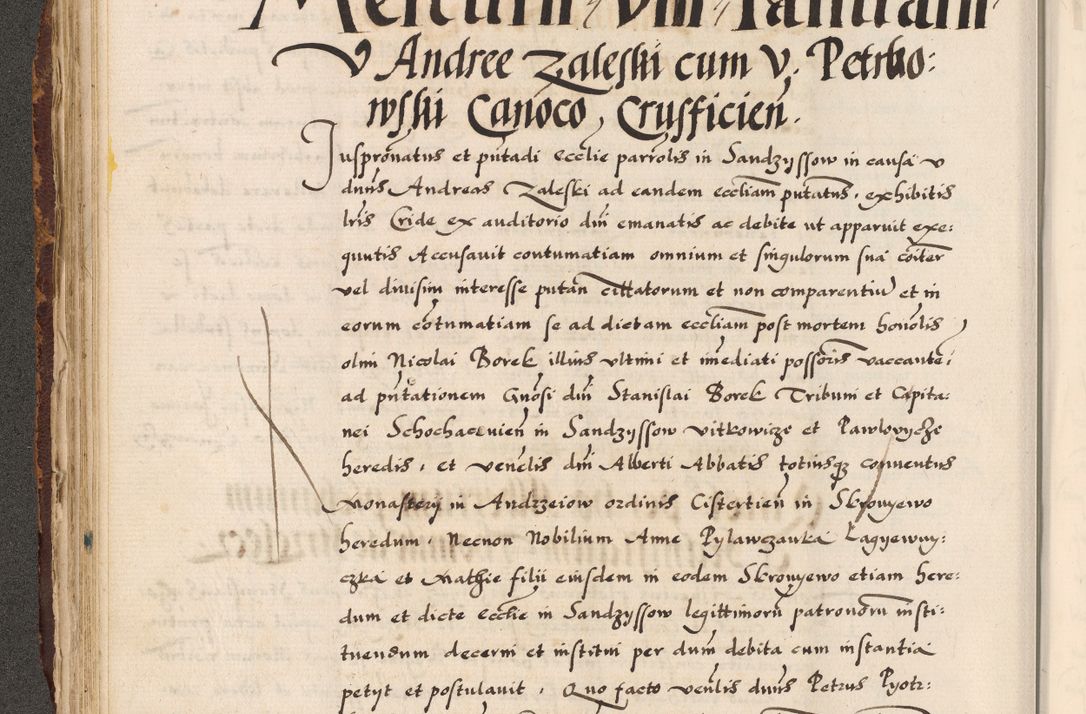 Mercurii VIII Ianuarii
V Andree Zaleski cum V. Petrko:
wski Canoco, Crusficien.
Juspronatus et putadi ecclie parrolis in Sandzyssow in causa v
duns Andreas Zaleski ad eandem eccliam putatus, exhibitis
lris Cride ex auditorio dni emanatis ac debite ut apparuit exe:
quutis Accusavit contumatiam omnium et singulorum sua coiter
vel divisim interesse putan cittatorum et non comparentiu et in
eorum cotumatiam se ad dictam eccliam post mortem honolis
olim Nicolai Borek illius ultimi et imediati possoris vaccante:
ad pntationem Gnosi dni Stanislai Borek Tribuni et Capita:
nei Schochacuien in Sandzyssow vitkowicze et Pawlovycze
heredis, et venelis dni Alberti Abbatis totiusq conventus
Monastery in Andrzeiow ordinis Cistertien in Skronyewo
heredum. Necnon Nobilium Anne Pylawczanka Lagyewny:
czka et Mathie filii eiusdem in eodem Skronyewo etiam here:
dum et dicte ecclie in Sandzyssow legittimoru patronoru insti:
tuendum decerni et institui per dum debita cum instantia
petyt et postulavit, Quo facto venlis duns Petrus Pyotr: